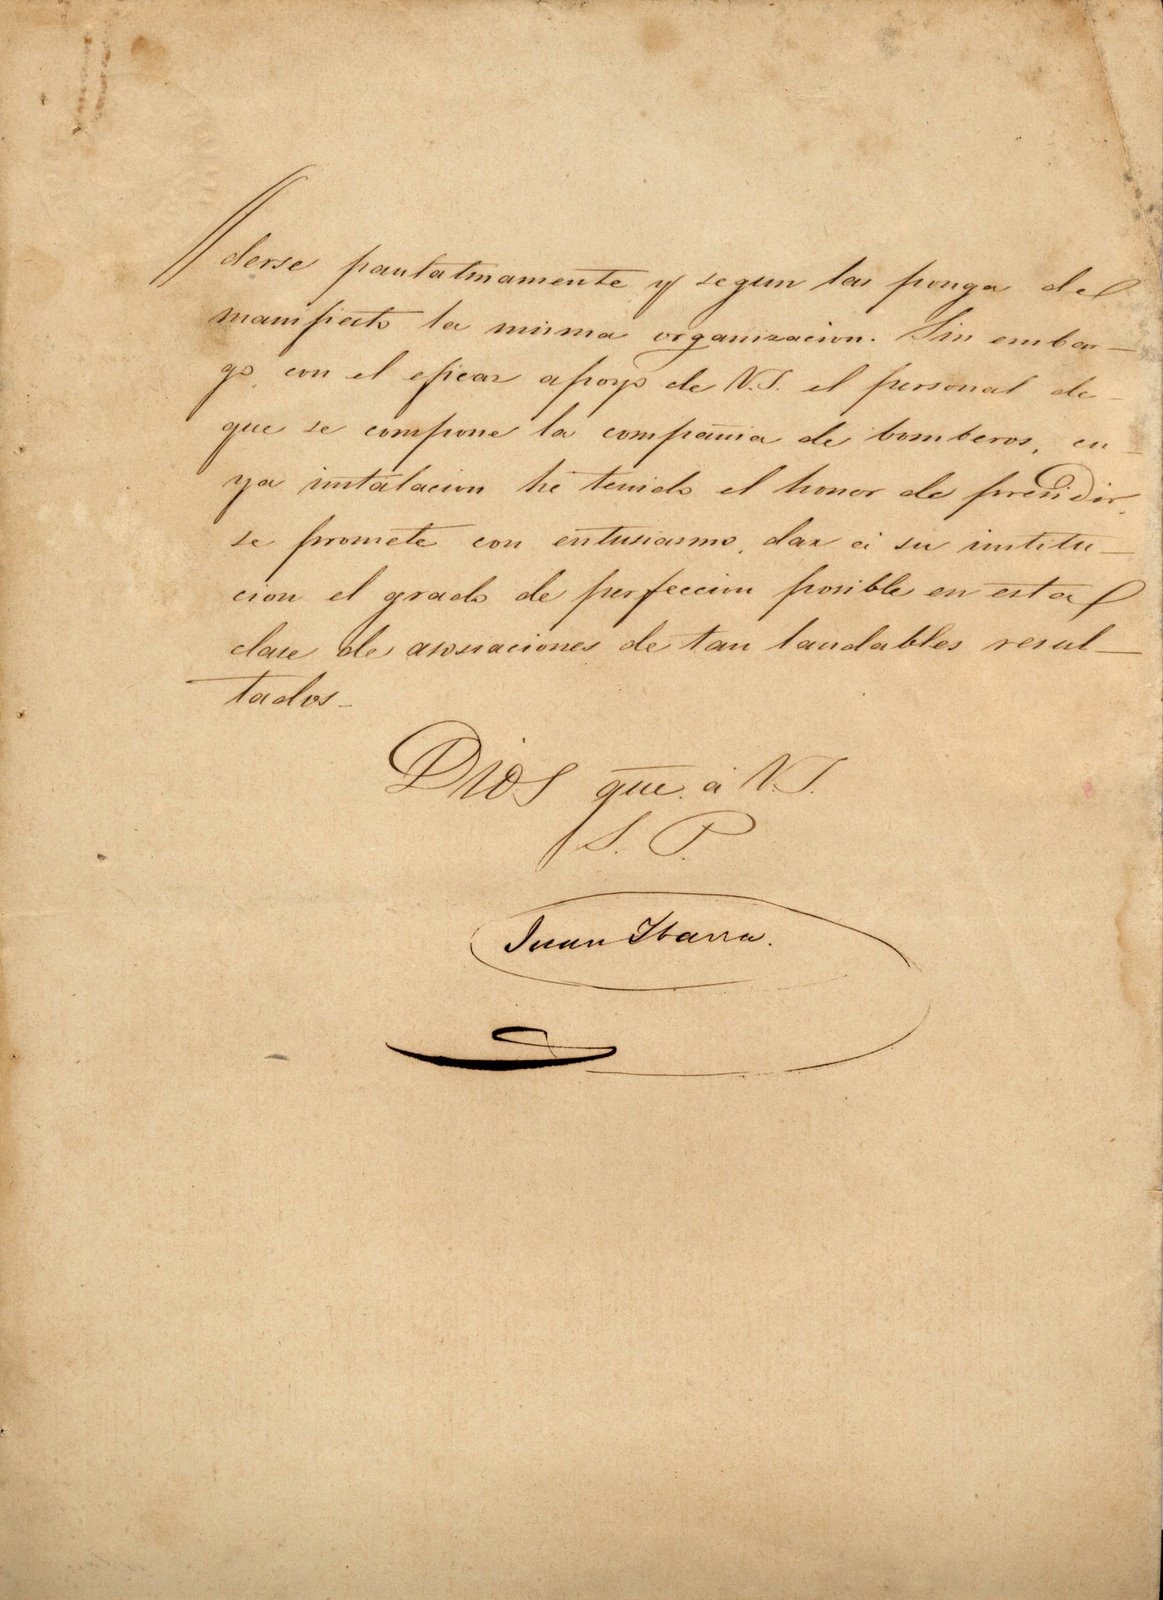 derse paulatinamente y segun las ponga de
manifiesto la misma organizacion. Sin embar-
go, con el eficaz apoyo de V.S. el personal de
que se compone la compañia de bomberos, cu-
ya instalacion he tenido el honor de presidir,
se promete con entusiasmo, dar á su institu-
cion el grado de perfeccion posible en esta
clase de asociaciones de tan laudables resul-
tados.
Dios gue. á V.S.
S. P.
Juan Ibarra.